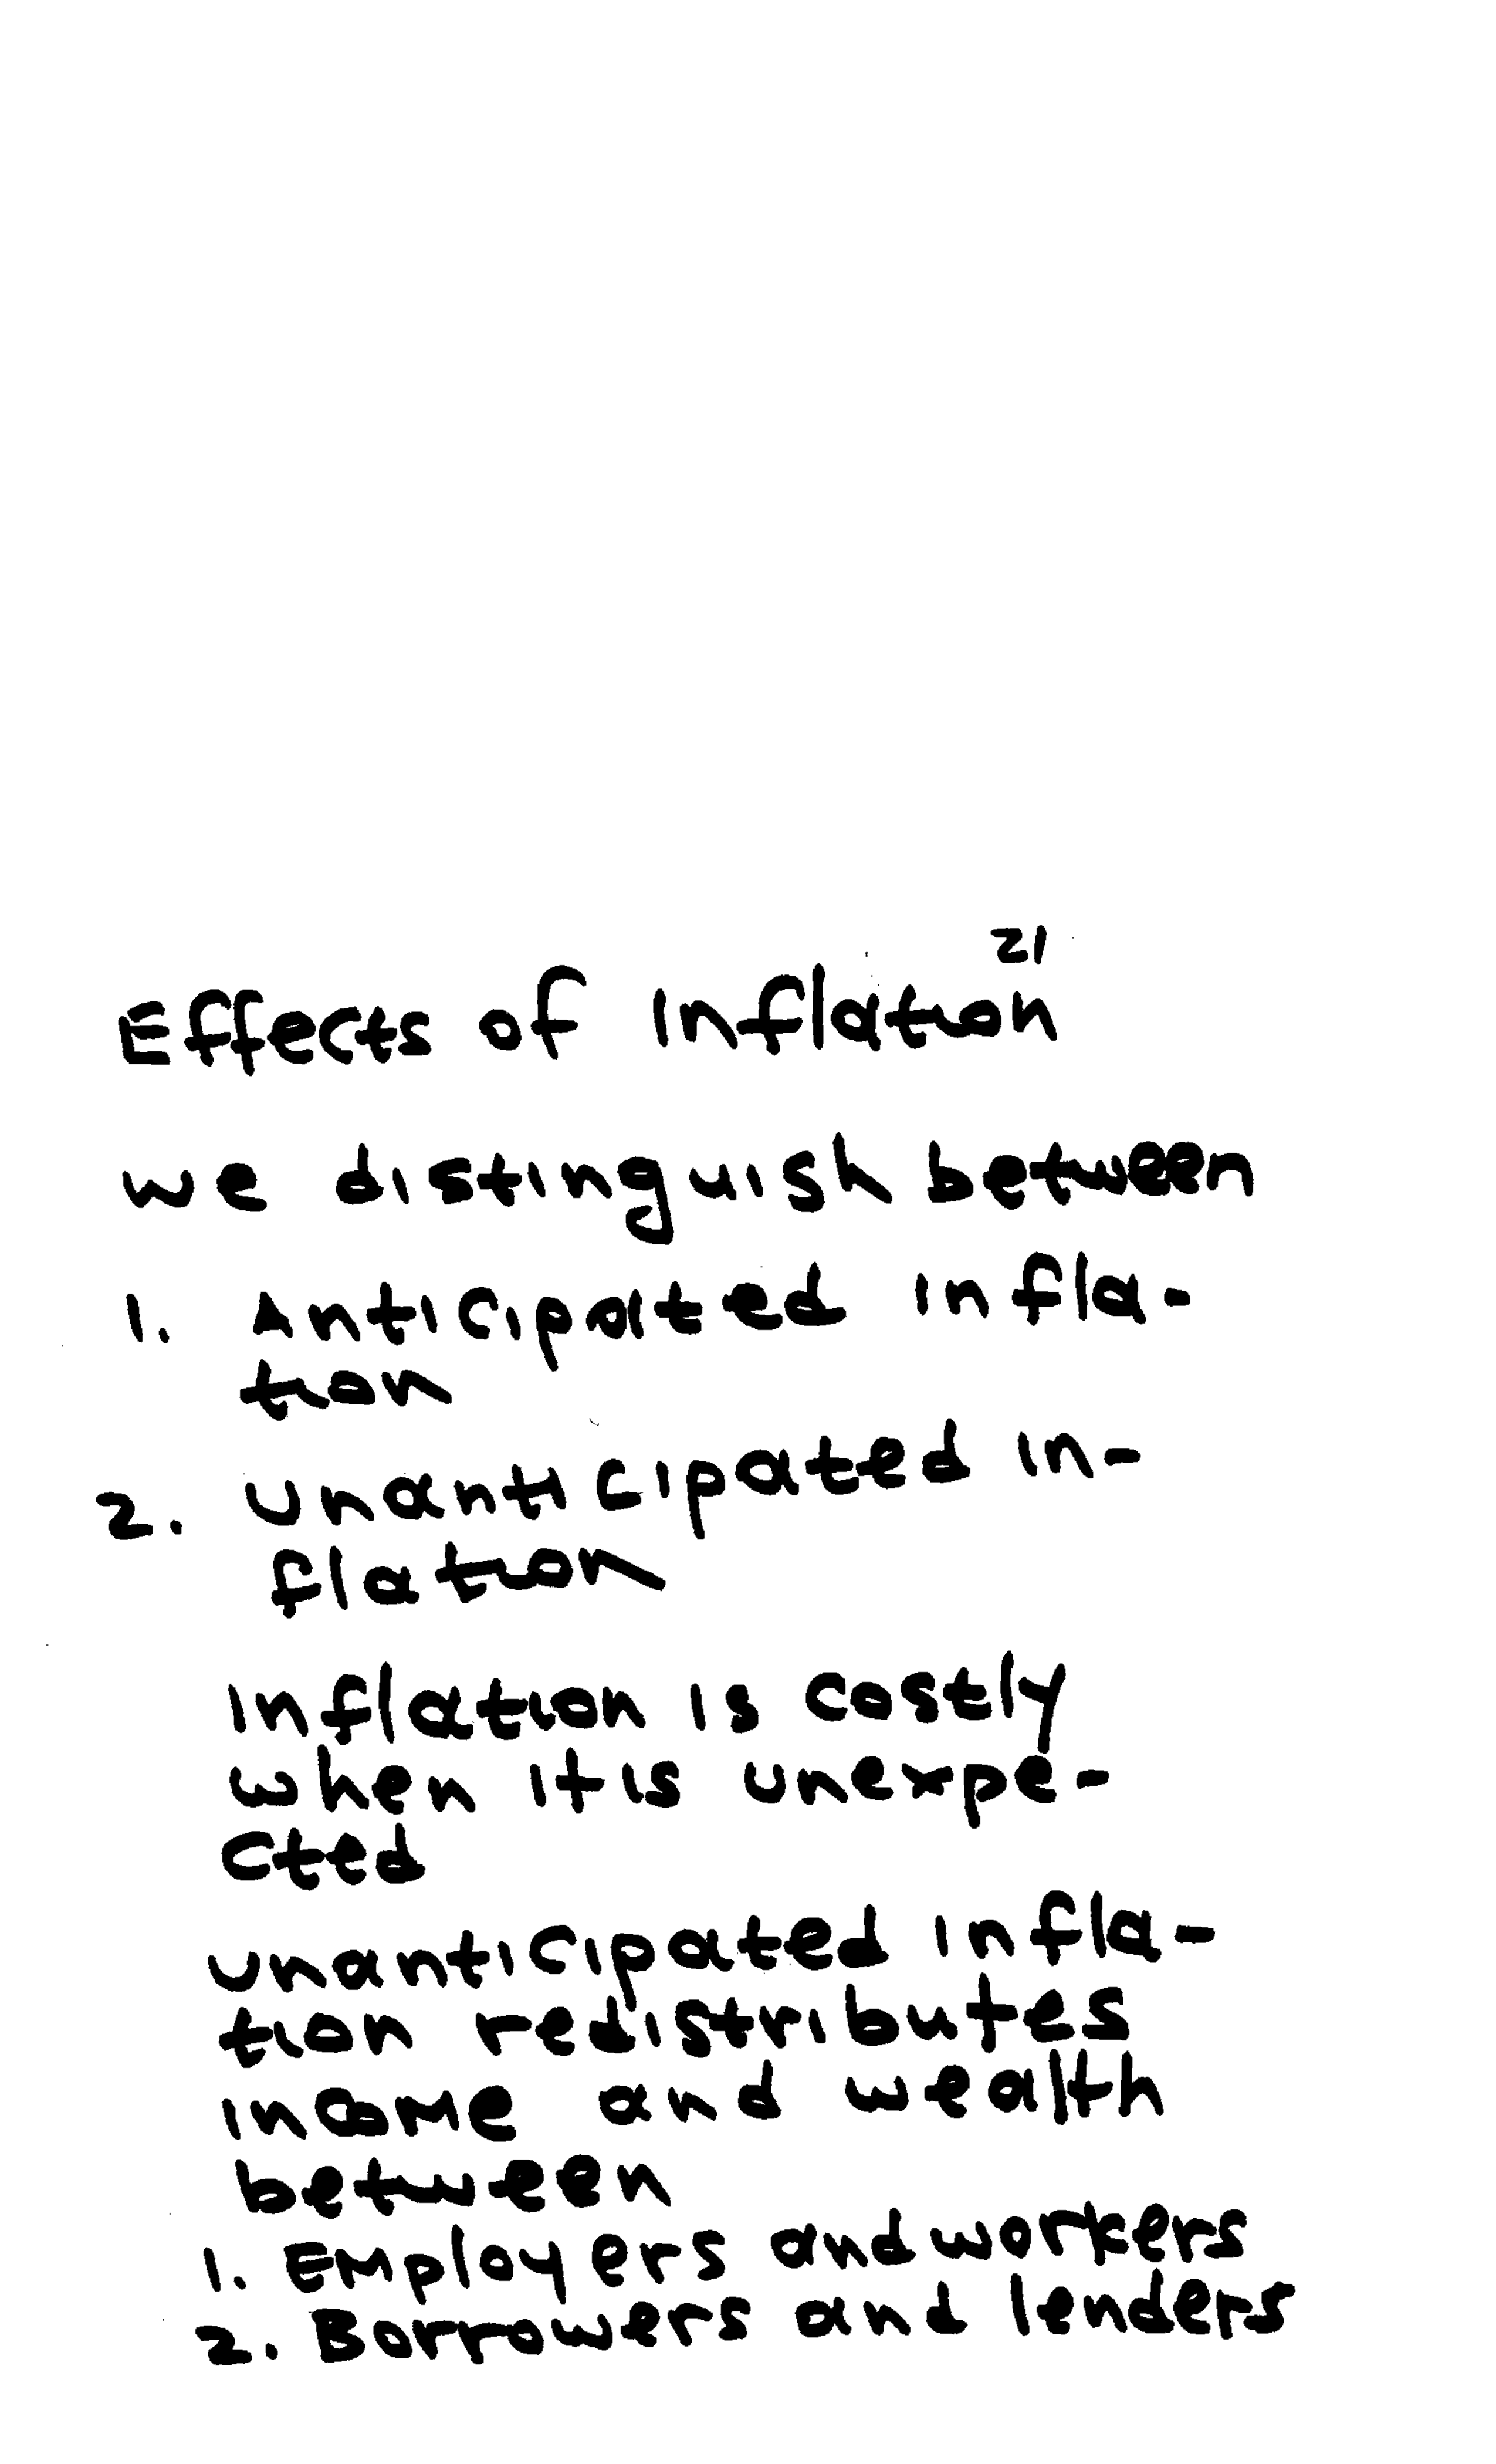 21
Effects of Inflation
we distinguish between
1. Anticipated infla-
tion
2. Unanticipated in-
flation
Inflation is costly
when it is unexpe-
cted
unanticipated infla-
tion redistributes
income and wealth
between
1. Employers and workers
2. Borrowers and lenders